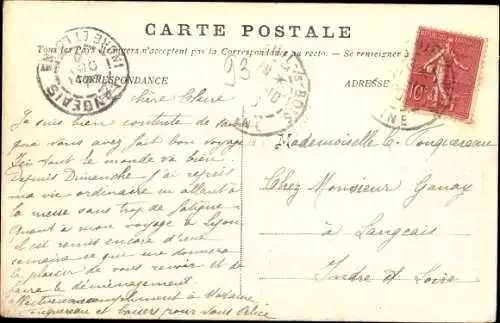 CARTE POSTALE
Tous les Pays étrangers n'acceptent pas la Correspondance au recto. Se renseigner à
CORRESPONDANCE
ADRESSE
93
LANGEAIS
INDRE ET L
BOIS
10c
chère Claire
Je suis bien contente de savoir
que vous avez fait bon voyage
Ici tout le monde va bien.
Depuis Dimanche j'ai repris
ma vie ordinaire en allant à
la messe sans trop de fatigue
Quant à mon voyage à Lyon
il est remis encore d'une
semaine ce que me donnera
le plaisir de vous revoir et de
faire le déménagement
compliment à Madame
Fouquereau et baisers pour vous Alice
Mademoiselle C. Fouquereau
Chez Monsieur Ganay
à Langeais
Indre et Loire